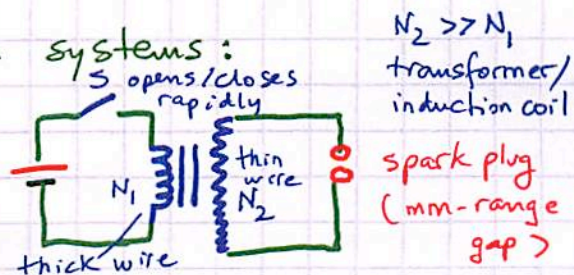 systems:
S opens/closes
rapidly
N₂ >> N₁
transformer/
induction coil
N₁
thin
wire
N₂
thick wire
spark plug
(mm-range
gap)